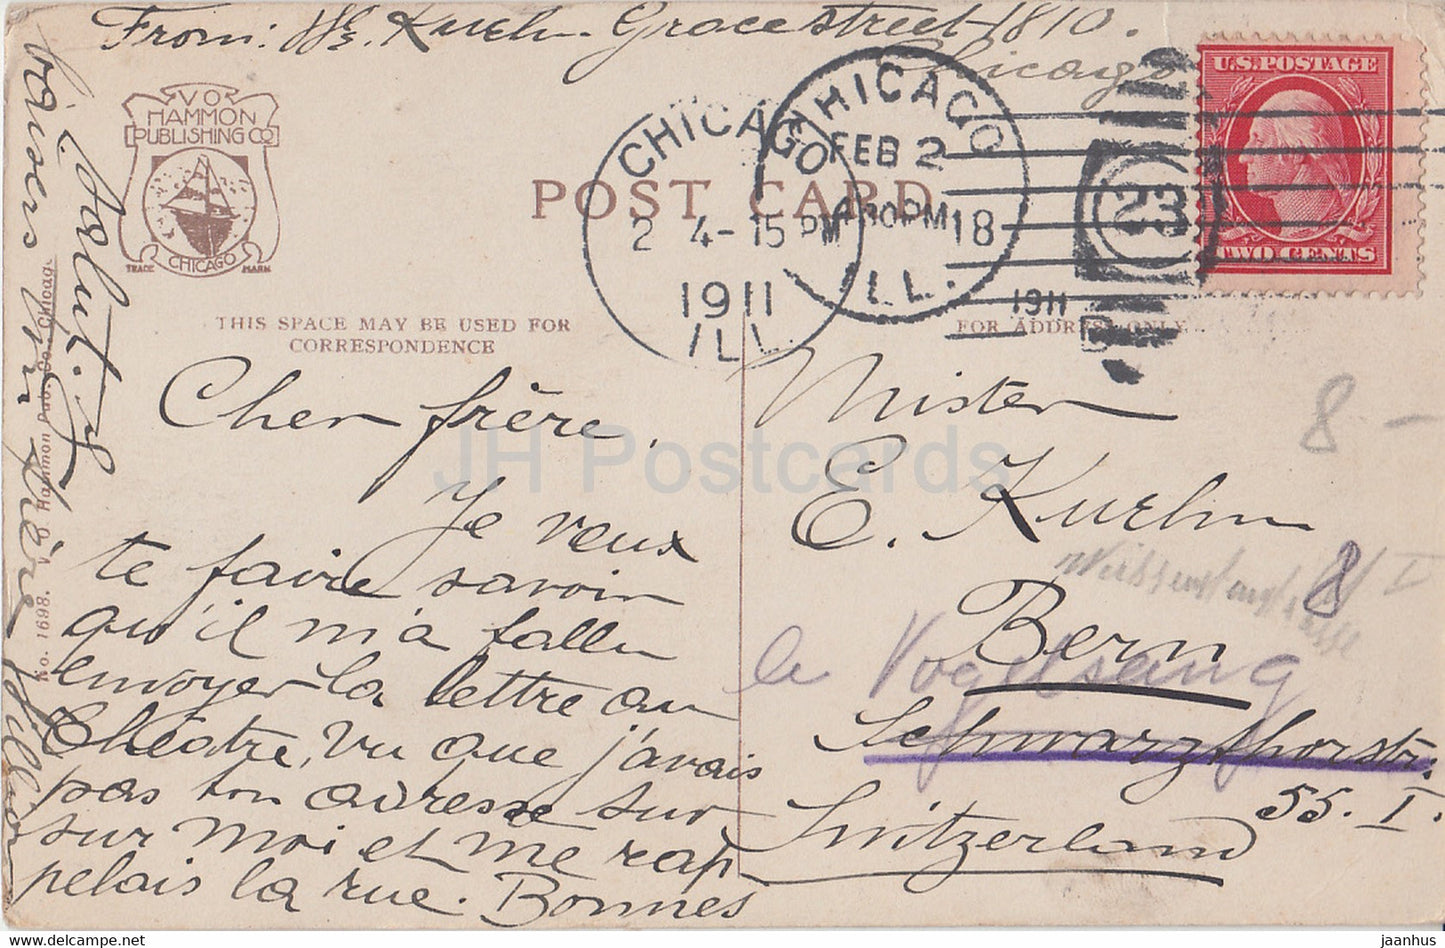 From: W. Kuehn Grace street 1810.
Chicago
V O
HAMMON
PUBLISHING CO
TRADE MARK
CHICAGO
POST CARD
CHICAGO
2 4-15 PM
1911
ILL.
CHICAGO
FEB 2
4 30 PM
18
ILL.
1911
23
D
U.S. POSTAGE
TWO CENTS
THIS SPACE MAY BE USED FOR
CORRESPONDENCE
FOR ADDRESS ONLY
Cher frère.
Je veux
te faire savoir
qu'il m'a fallu
envoyer la lettre au
Théatre, vu que j'avais
pas ton adresse sur
sur moi et me rap
pelais la rue. Bonnes
salut. et
baisers ton frère
No. 1698. V. O. Hammon Pub. Co. Chicago.
Mister
E. Kuehn
Bern
Vogelsang
Schwarzthorstr.
55. I.
Switzerland
8 -
8 I
JH Postcards
jaanhus